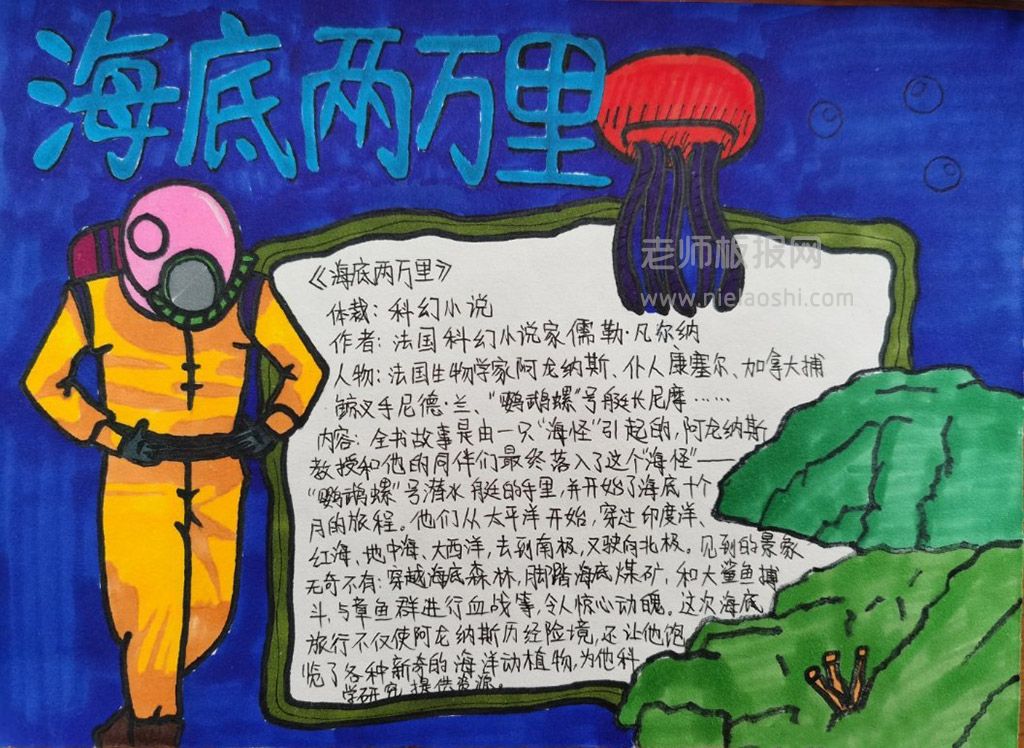 海底两万里
老师板报网
www.nielaoshi.com
《海底两万里》
体裁：科幻小说
作者：法国科幻小说家儒勒·凡尔纳
人物：法国生物学家阿龙纳斯、仆人康塞尔、加拿大捕
鲸叉手尼德·兰、“鹦鹉螺”号艇长尼摩……
内容：全书故事是由一只“海怪”引起的，阿龙纳斯
教授和他的同伴们最终落入了这个“海怪”——
“鹦鹉螺”号潜水艇的手里，并开始了海底十个
月的旅程。他们从太平洋开始，穿过印度洋、
红海、地中海、大西洋，去到南极，又驶向北极。见到的景象
无奇不有：穿越海底森林，脚踏海底煤矿，和大鲨鱼搏
斗，与章鱼群进行血战等，令人惊心动魄。这次海底
旅行不仅使阿龙纳斯历经险境，还让他饱
览了各种新奇的海洋动植物，为他科
学研究提供资源。